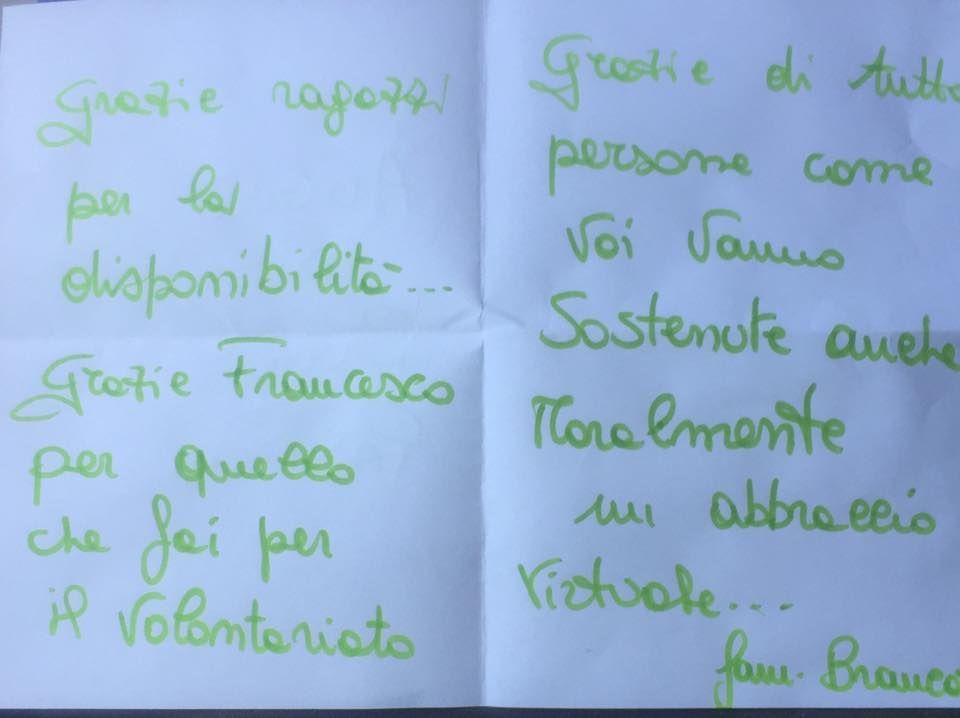 Grazie ragazzi
per la
disponibilità...
Grazie Francesco
per quello
che fai per
il Volontariato
Grazie di tutto
persone come
Voi Vanno
Sostenute anche
Moralmente
un abbraccio
Virtuale....
fam. Branco